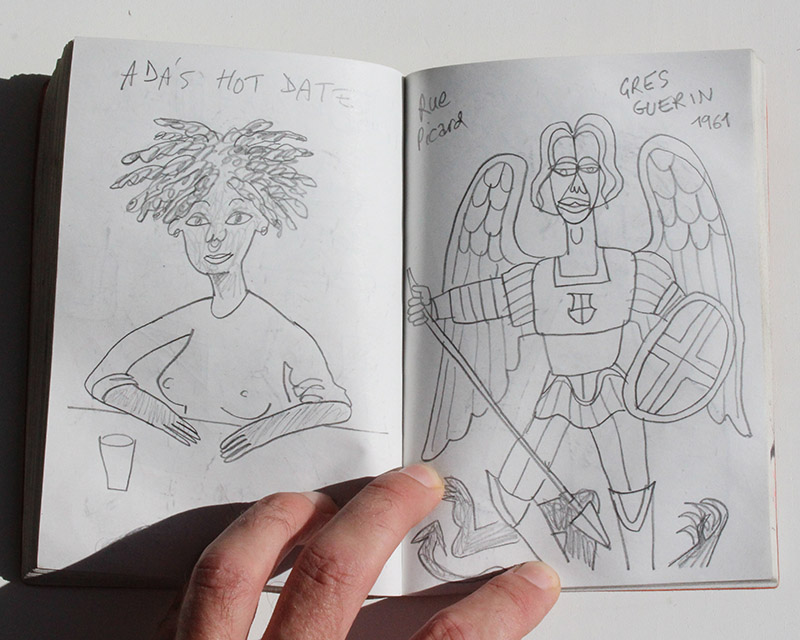 ADA'S HOT DATE
Rue
Picard
GRES
GUERIN
1961